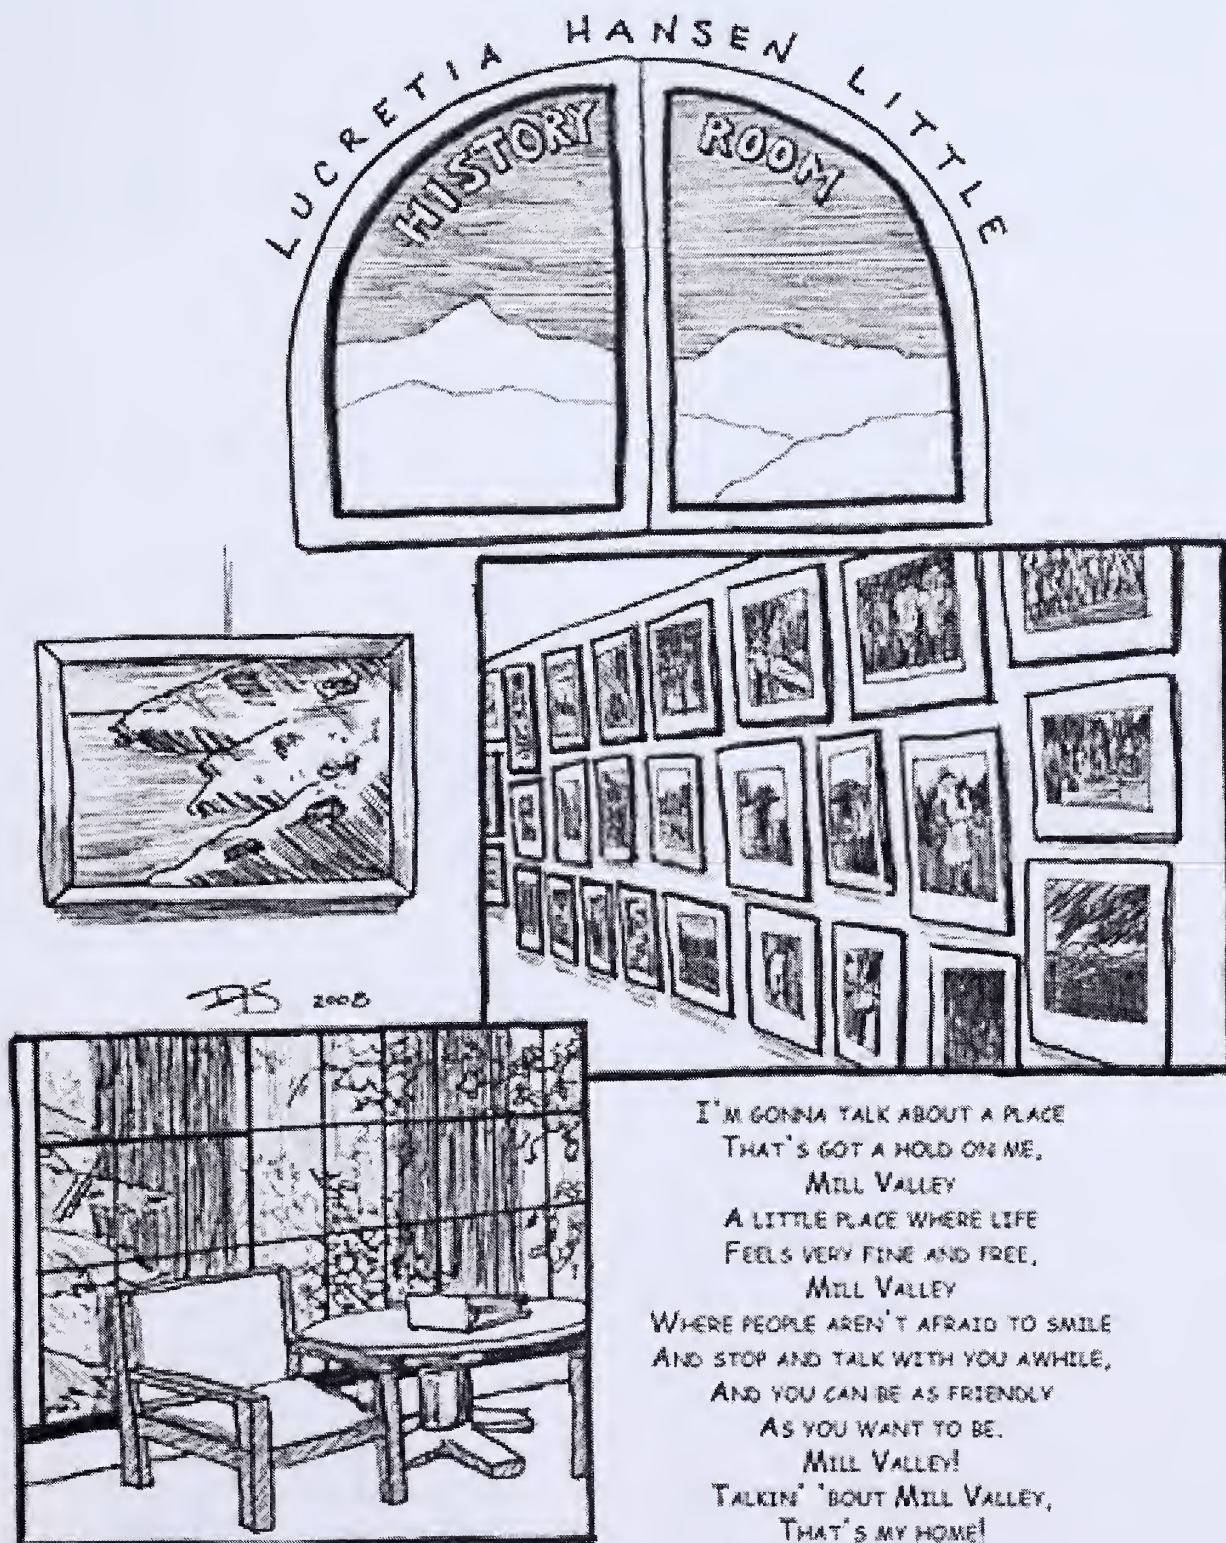 LUCRETIA HANSEN LITTLE
HISTORY ROOM
2008
I'M GONNA TALK ABOUT A PLACE
THAT'S GOT A HOLD ON ME,
MILL VALLEY
A LITTLE PLACE WHERE LIFE
FEELS VERY FINE AND FREE,
MILL VALLEY
WHERE PEOPLE AREN'T AFRAID TO SMILE
AND STOP AND TALK WITH YOU AWHILE,
AND YOU CAN BE AS FRIENDLY
AS YOU WANT TO BE.
MILL VALLEY!
TALKIN' 'BOUT MILL VALLEY,
THAT'S MY HOME!